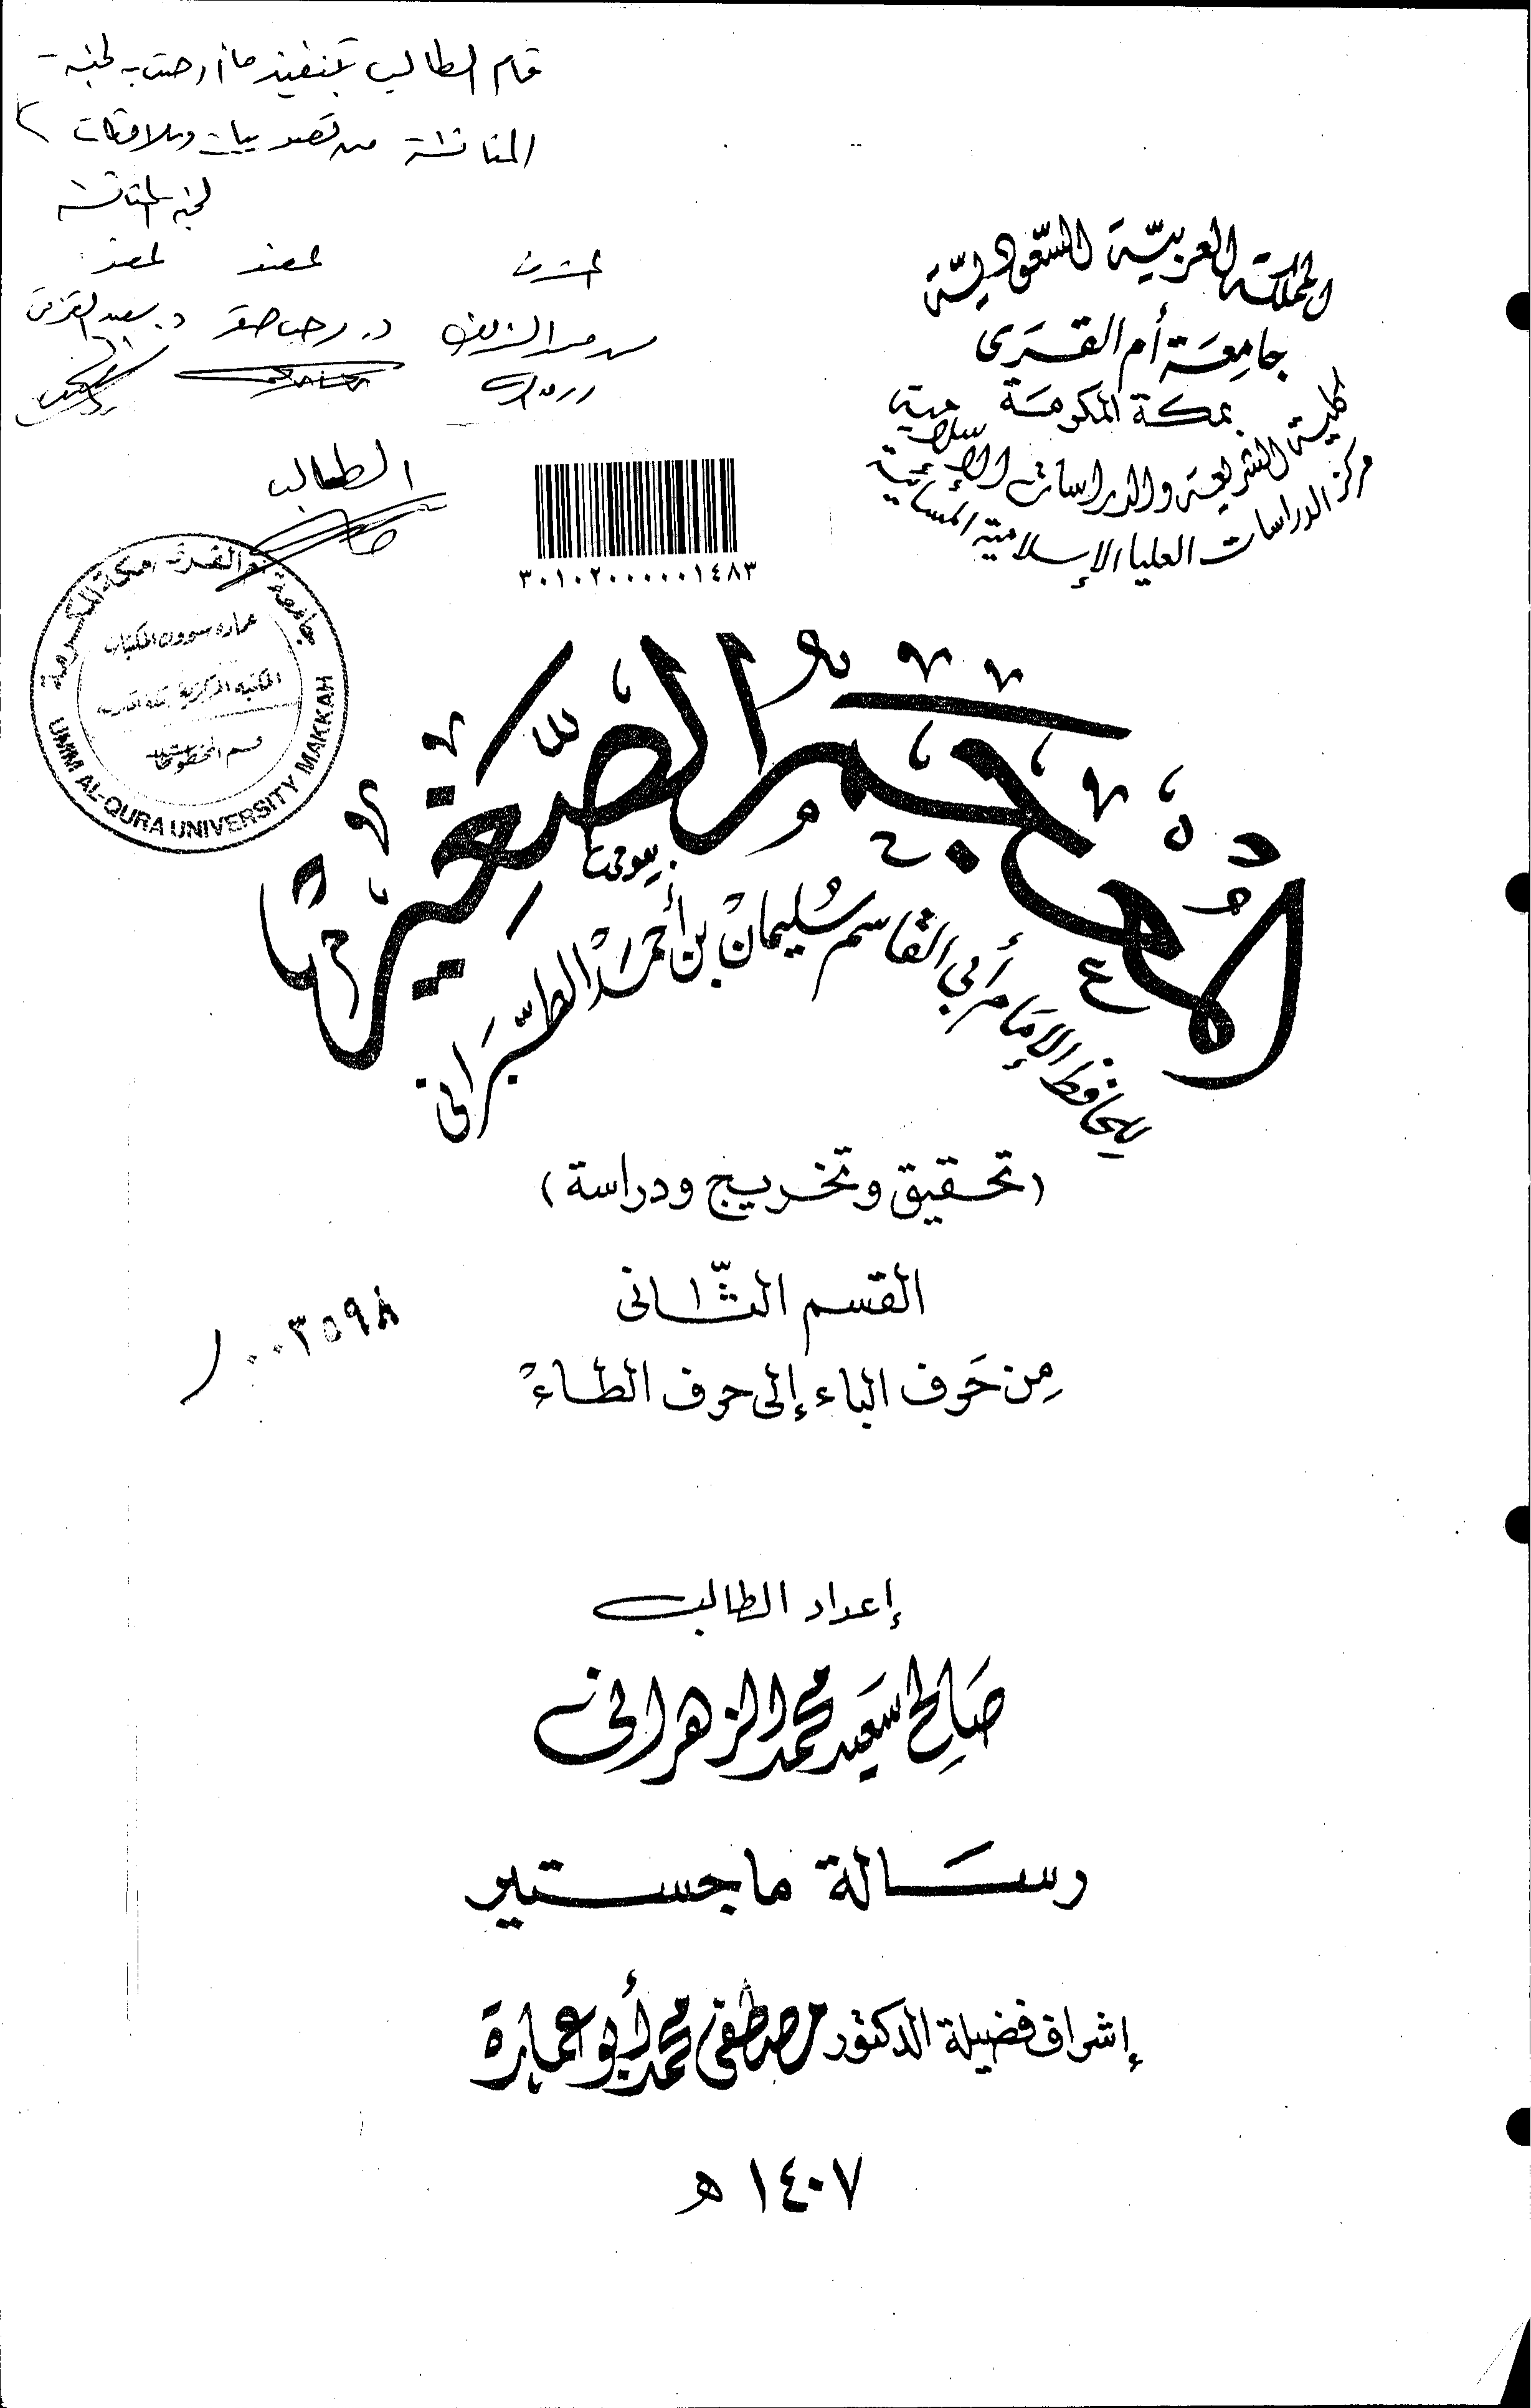 قام الطالب بتنفيذ ما أوصت به لجنة
المناقشة من تصويبات وملاحظات
لجنة المناقشة
المشرف عضو عضو
المملكة العربية السعودية
جامعة أم القرى
بمكة المكرمة
كلية الشريعة والدراسات الإسلامية
مركز الدراسات العليا الإسلامية المسائية
الطالب
٣٠١٠٢٠٠٠٠٠١٤٨٣
جامعة أم القرى مكة المكرمة
عمادة شؤون المكتبات
قسم المخطوطات
UMM AL-QURA UNIVERSITY MAKKAH
المعجم الصغير
للحافظ الإمام أبي القاسم سليمان بن أحمد الطبراني
(تحقيق وتخريج ودراسة)
القسم الثاني
٠٠٣٥٩٨
من حرف الباء إلى حرف الطاء
إعداد الطالب
صالح سعيد محمد الزهراني
رسالة ماجستير
إشراف فضيلة الدكتور مصطفى محمد أبو عمارة
١٤٠٧ هـ